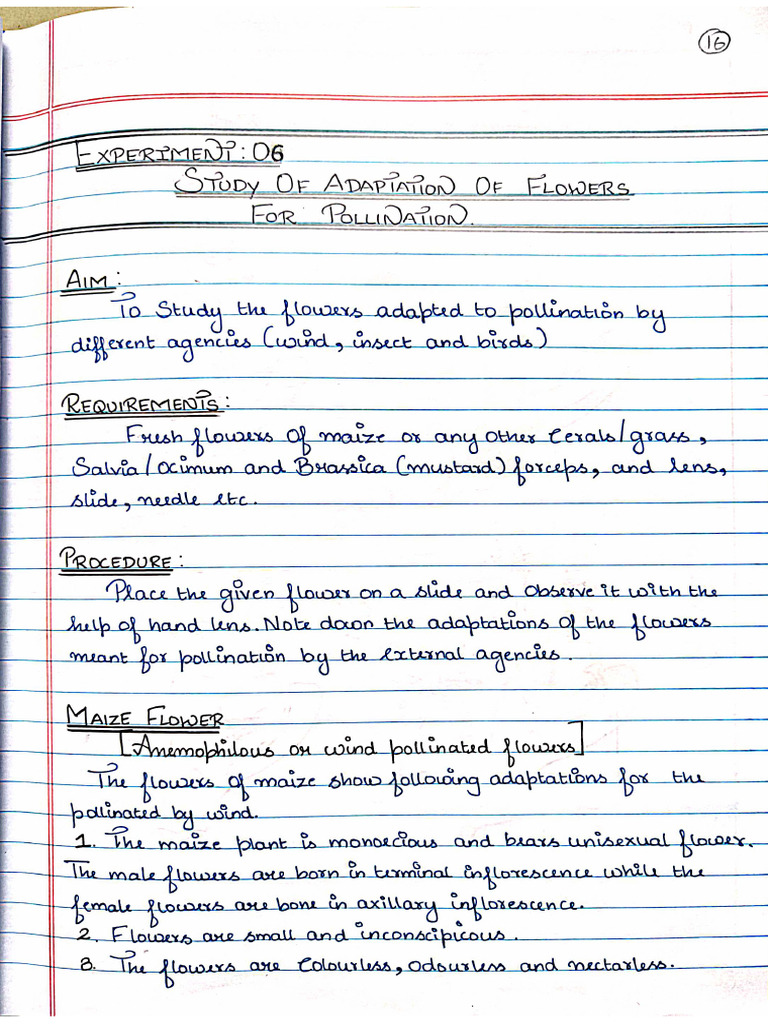 16
EXPERIMENT: 06
STUDY OF ADAPTATION OF FLOWERS
FOR POLLINATION.
AIM:
To Study the flowers adapted to pollination by
different agencies (wind, insect and birds)
REQUIREMENTS:
Fresh flowers of maize or any other Cerals/grass,
Salvia/Ocimum and Brassica (mustard) forceps, and lens,
slide, needle etc.
PROCEDURE:
Place the given flower on a slide and observe it with the
help of hand lens. Note down the adaptations of the flowers
meant for pollination by the external agencies.
MAIZE FLOWER
[Anemophilous or wind pollinated flowers]
The flowers of maize show following adaptations for the
pollinated by wind.
1. The maize plant is monoecious and bears unisexual flower.
The male flowers are born in terminal inflorescence while the
female flowers are bone in axillary inflorescence.
2. Flowers are small and inconscipicous.
3. The flowers are Colourless, Odourless and nectarless.